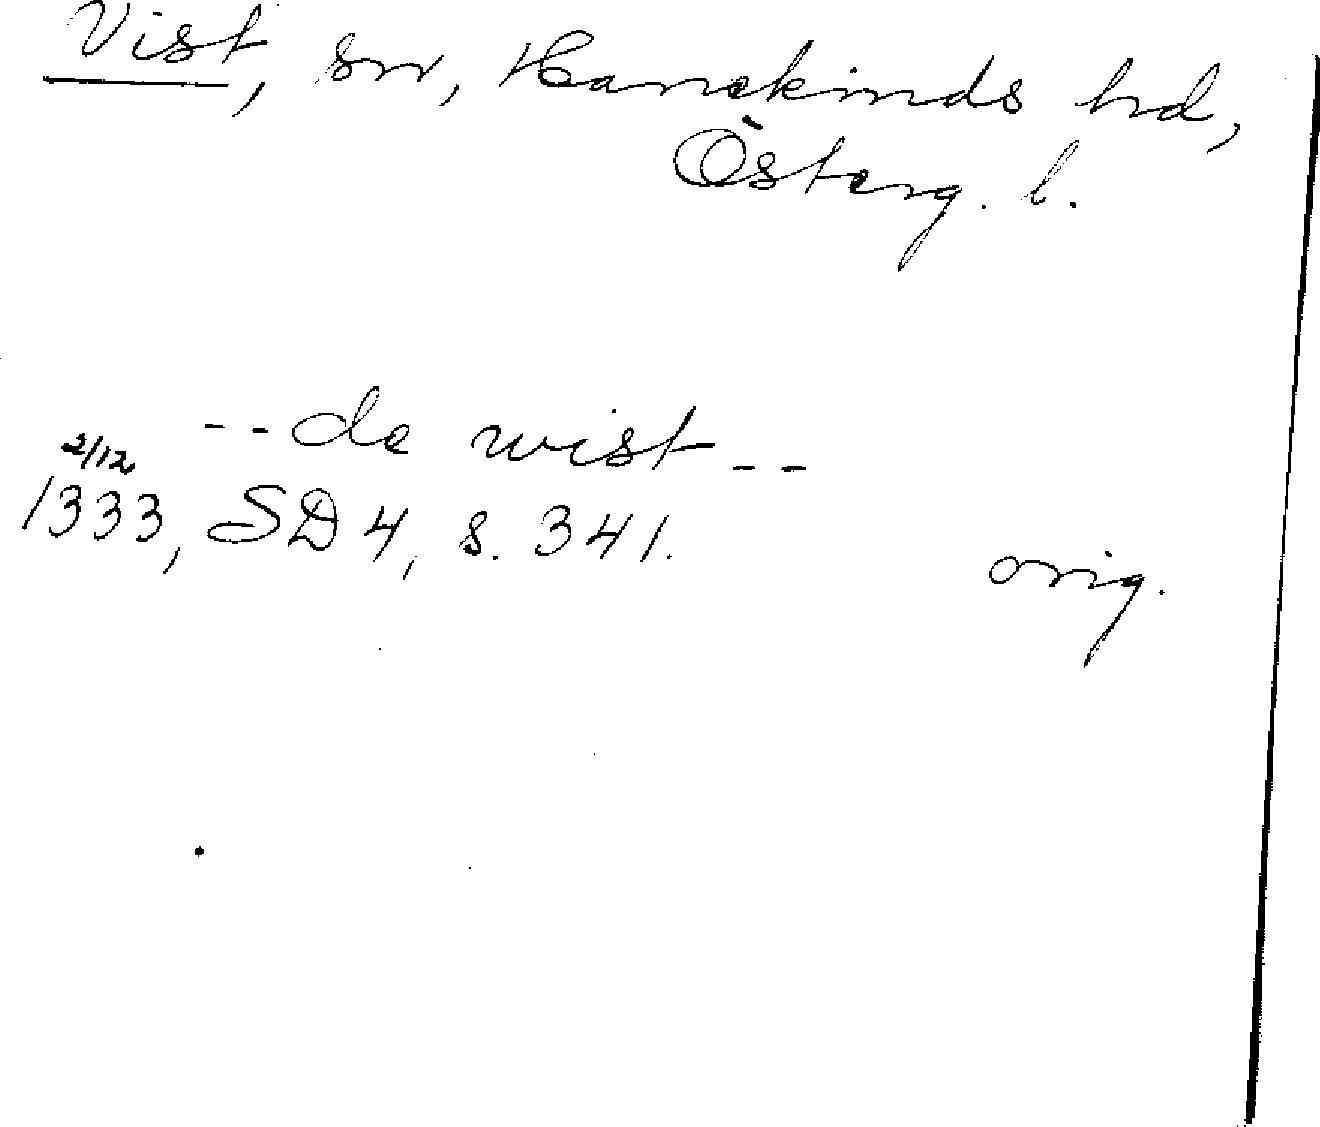 Vist, sn, Hanekinds hd,
Österg. l.
-- de wist --
2/12
1333, SD 4, s. 341.
orig.